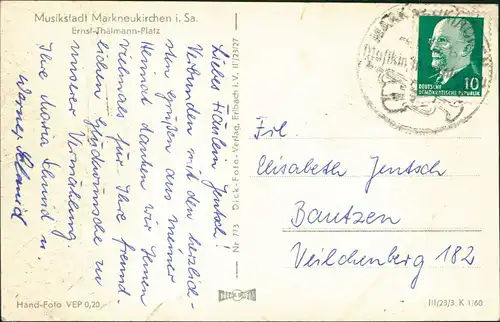 Musikstadt Markneukirchen i. Sa.
Ernst-Thälmann-Platz
Liebes Fräulein Jentsch!
Verbunden mit den herzlich-
sten Grüßen aus meiner
Heimat danken wir Ihnen
vielmals für Ihre freund-
lichen Glückwünsche zu
unserer Vermählung.
Ihre Maria Schmid u.
Werner Schmid
Hand-Foto VEP 0,20
Nr. 773 Dick-Foto-Verlag, Erlbach i. V. II/23/27
DICK
DEUTSCHE
DEMOKRATISCHE REPUBLIK
10
Frl.
Elisabeth Jentsch
Bautzen
Veilchenberg 182
III/23/3 K 1/60